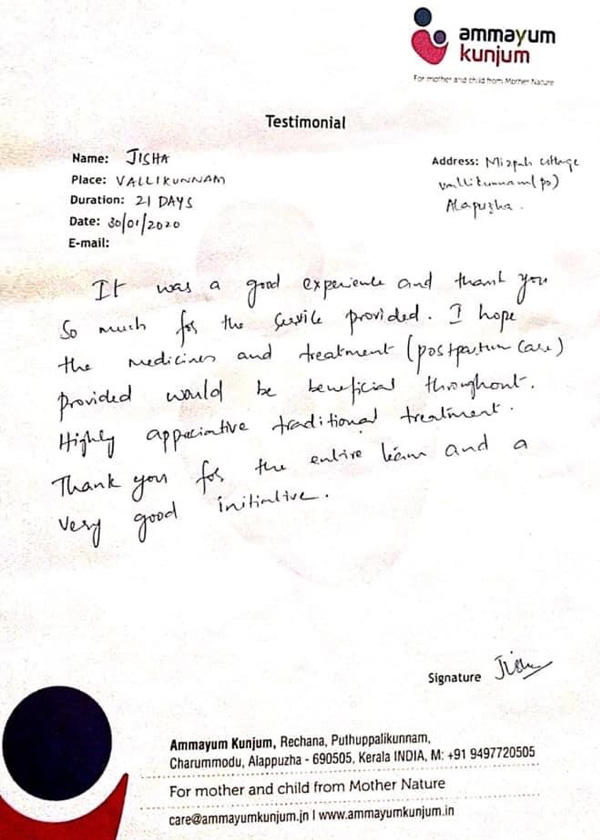 ammayum
kunjum
For mother and child from Mother Nature
Testimonial
Name: JISHA
Place: VALLIKUNNAM
Duration: 21 DAYS
Date: 30/01/2020
E-mail:
Address: Mizpah cottage
vallikunnam (po)
Alapuzha.
It was a good experience and thank you
so much for the service provided. I hope
the medicines and treatment (postpartum care)
provided would be beneficial throughout.
Highly appreciative traditional treatment.
Thank you for the entire team and a
very good initiative.
Signature Jisha
Ammayum Kunjum, Rechana, Puthuppalikunnam,
Charummodu, Alappuzha - 690505, Kerala INDIA, M: +91 9497720505
For mother and child from Mother Nature
care@ammayumkunjum.in I www.ammayumkunjum.in